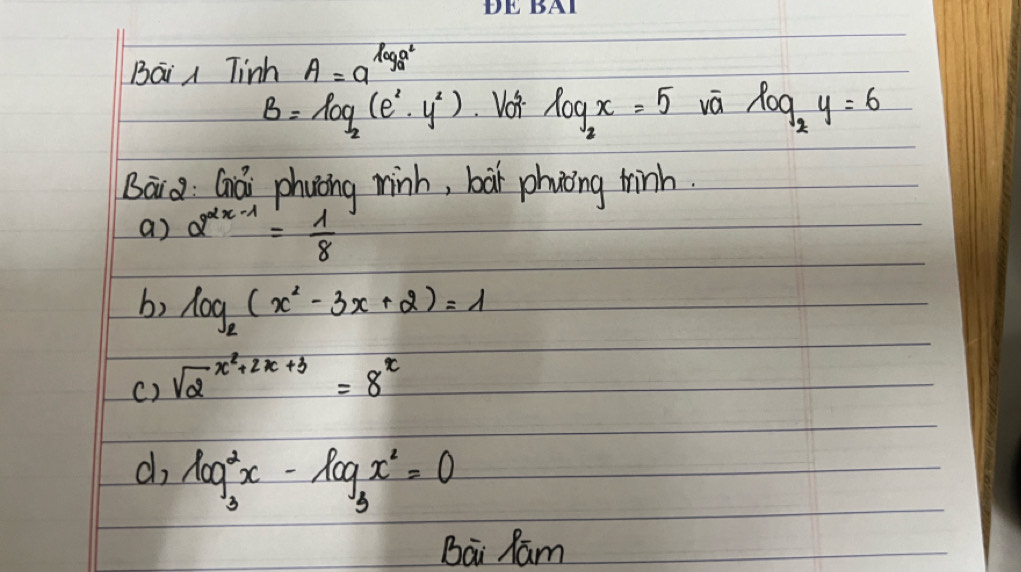 ĐỀ BÀI
Bài 1 Tính A = a^{log_a a²}
B = log_2 (e² . y²). Với log_2 x = 5 và log_2 y = 6
Bài 2: Giải phương trình, bất phương trình.
a) 2^{2x-1} = 1/8
b) log_2 (x² - 3x + 2) = 1
c) √2^{x²+2x+3} = 8^x
d) log²_3 x - log_3 x² = 0
Bài làm